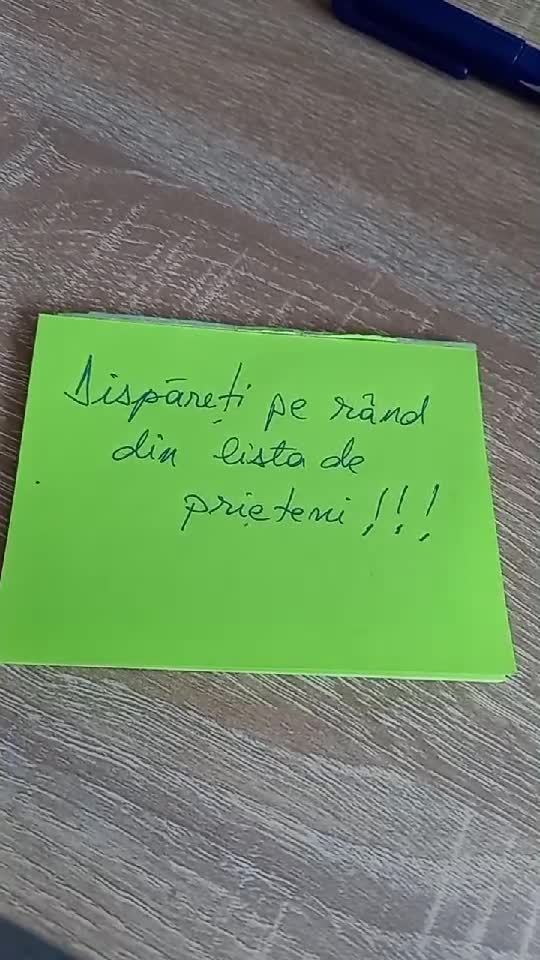 Dispăreți pe rând
din lista de
prieteni!!!